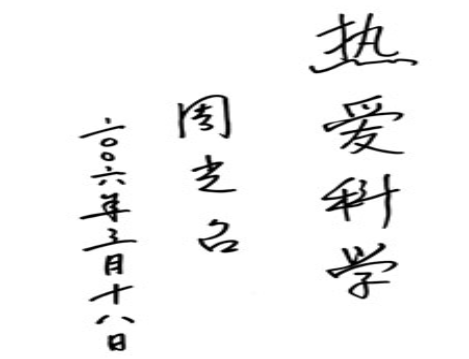 热爱科学
周光召
二〇〇六年三月十八日